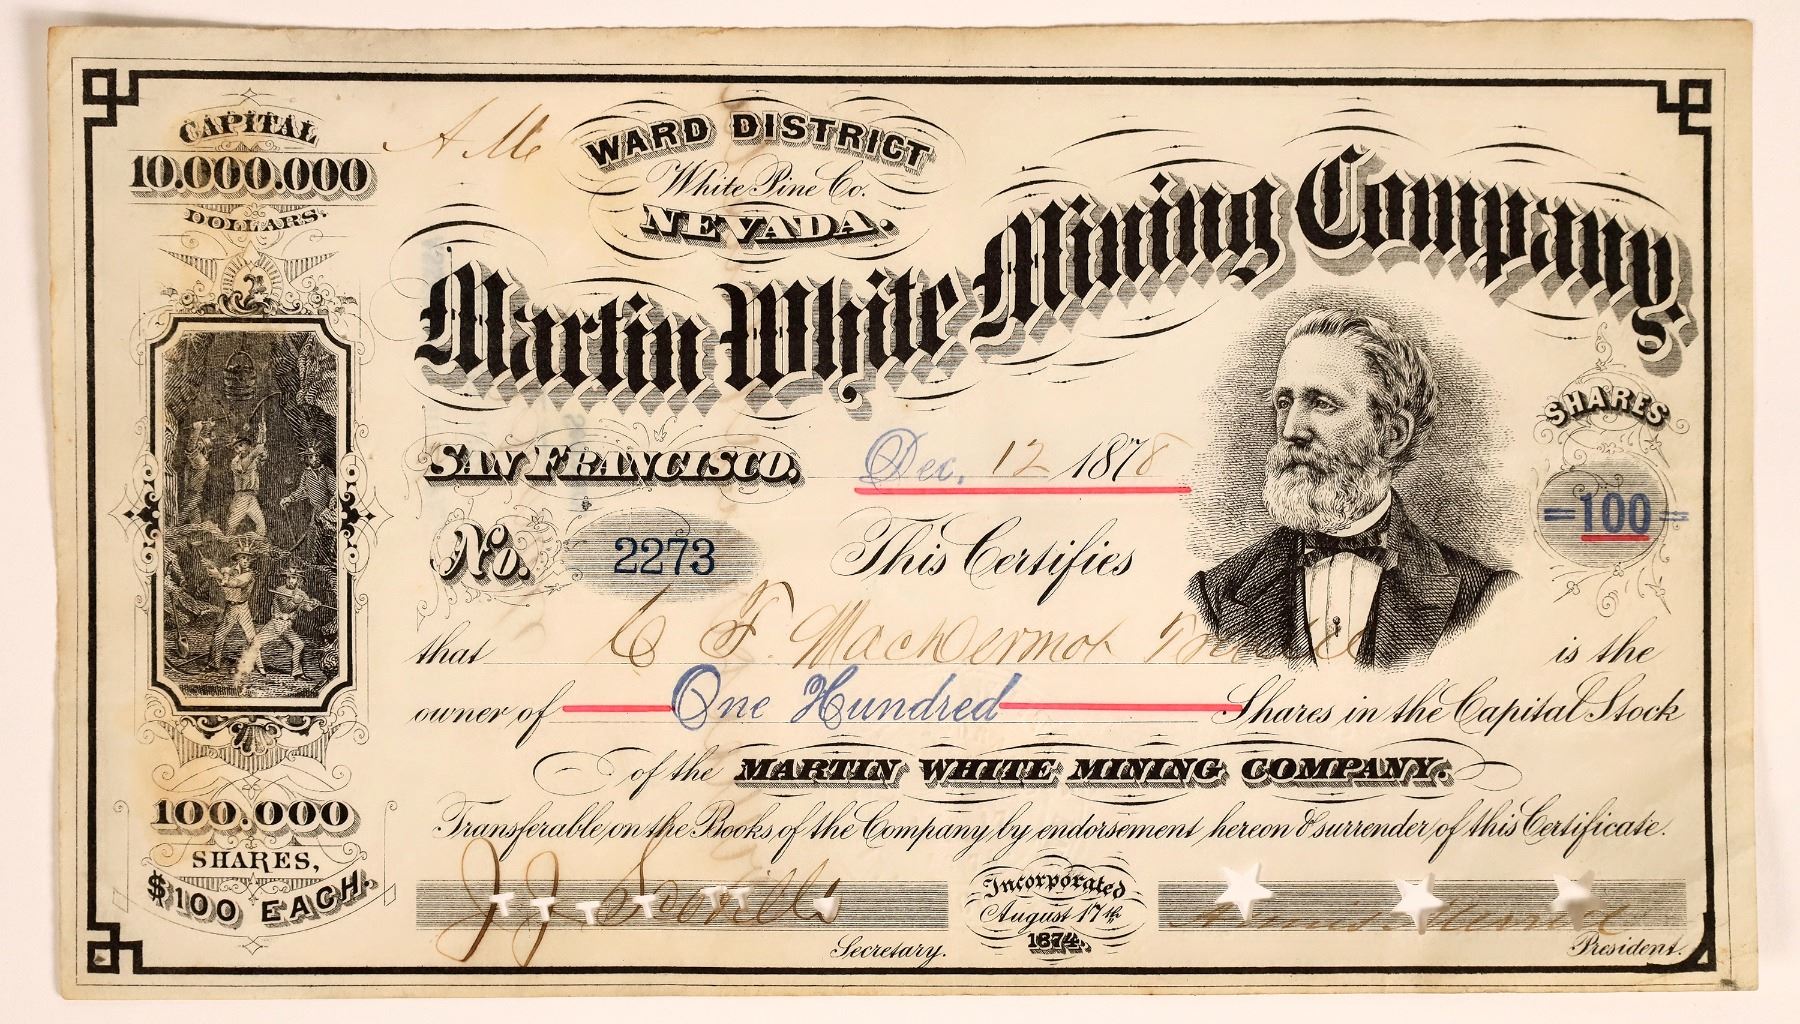 CAPITAL
10.000.000
DOLLARS.
WARD DISTRICT
White Pine Co.
NEVADA.
Martin White Mining Company,
SAN FRANCISCO, Dec. 12 1878
SHARES
=100=
No. 2273 This Certifies
that C F MacDermot Trustee is the
owner of One Hundred Shares in the Capital Stock
of the MARTIN WHITE MINING COMPANY.
Transferable on the Books of the Company by endorsement hereon & surrender of this Certificate.
100.000
SHARES,
$100 EACH.
J. J. Scoville
Secretary.
Incorporated
August 17th
1874.
President.